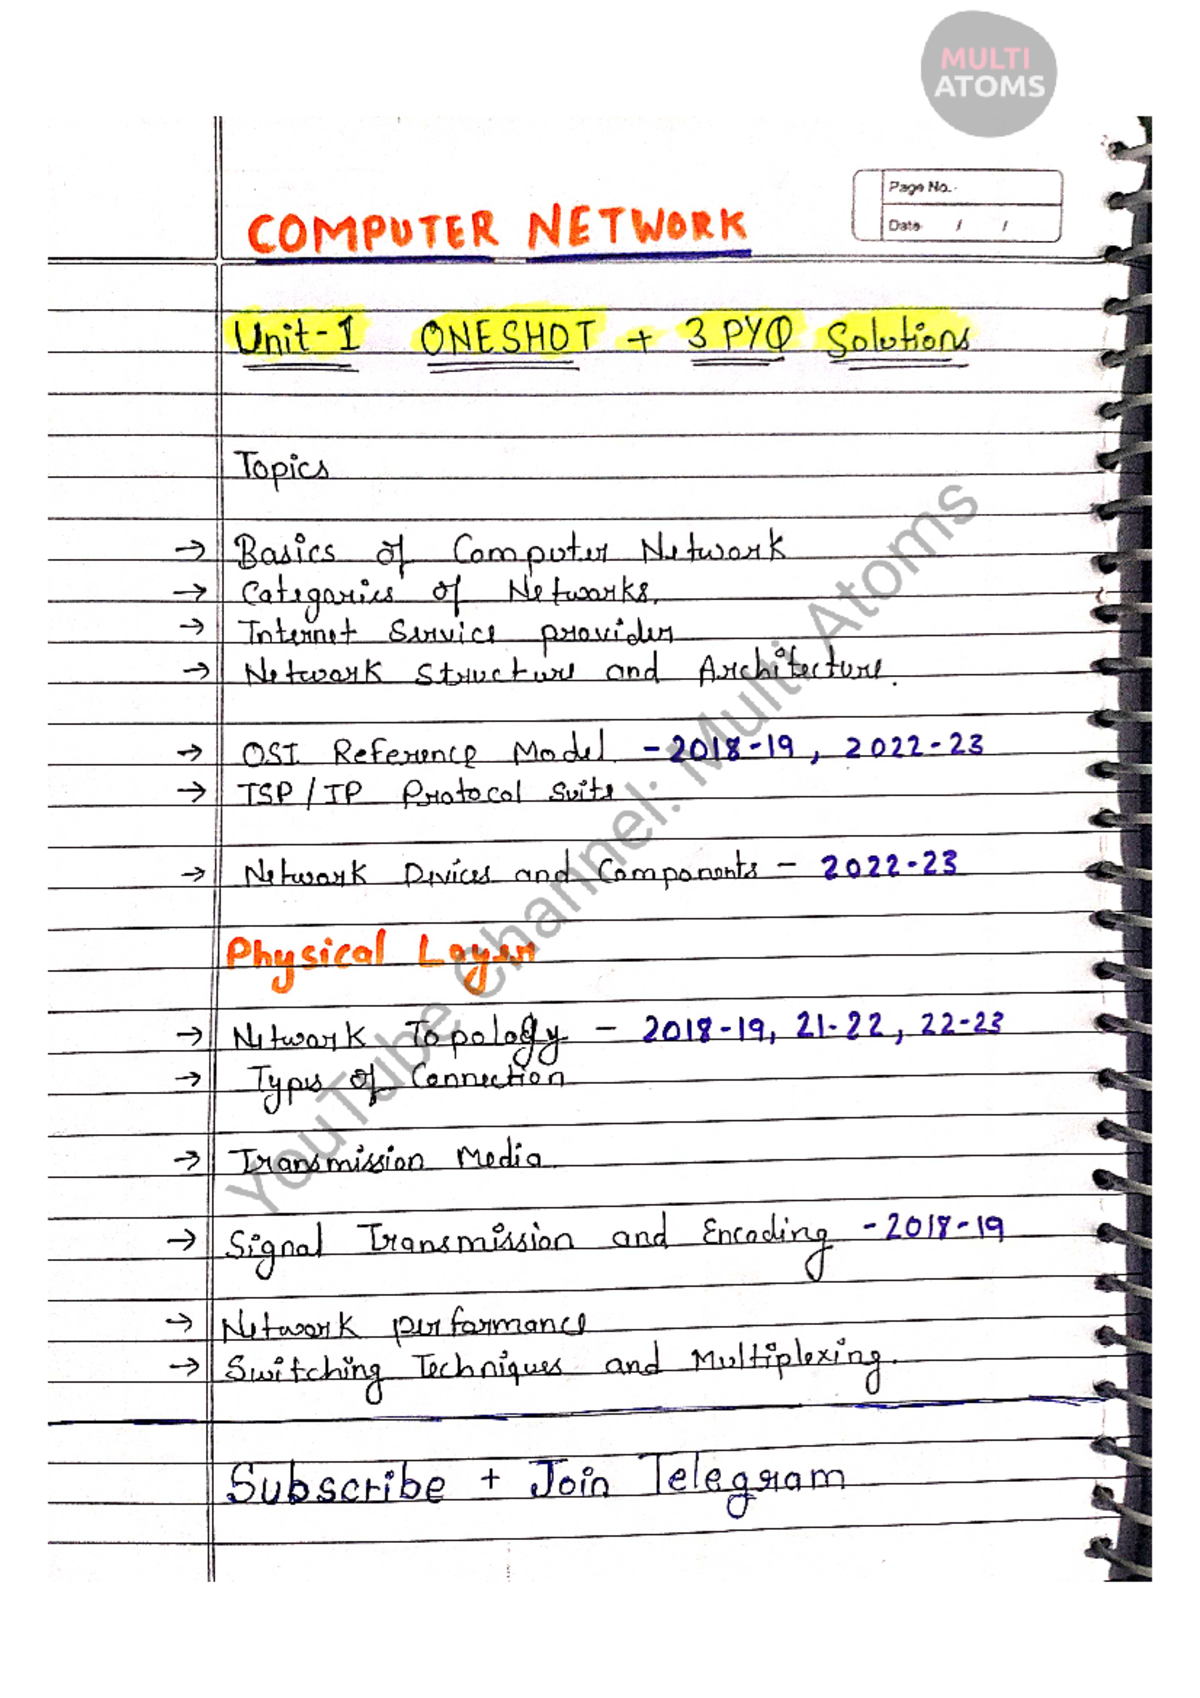 MULTI
ATOMS
Page No.
Date / /
COMPUTER NETWORK
Unit-1 ONESHOT + 3 PYQ Solutions
Topics
→ Basics of Computer Network
→ Categories of Networks.
→ Internet Service provider
→ Network Structure and Architecture.
→ OSI Reference Model - 2018-19, 2022-23
→ TSP/IP Protocol Suite
→ Network Devices and Components - 2022-23
Physical Layer
→ Network Topology - 2018-19, 21-22, 22-23
→ Types of Connection
→ Transmission Media
→ Signal Transmission and Encoding - 2018-19
→ Network performance
→ Switching Techniques and Multiplexing.
Subscribe + Join Telegram
YouTube channel: Multi Atoms